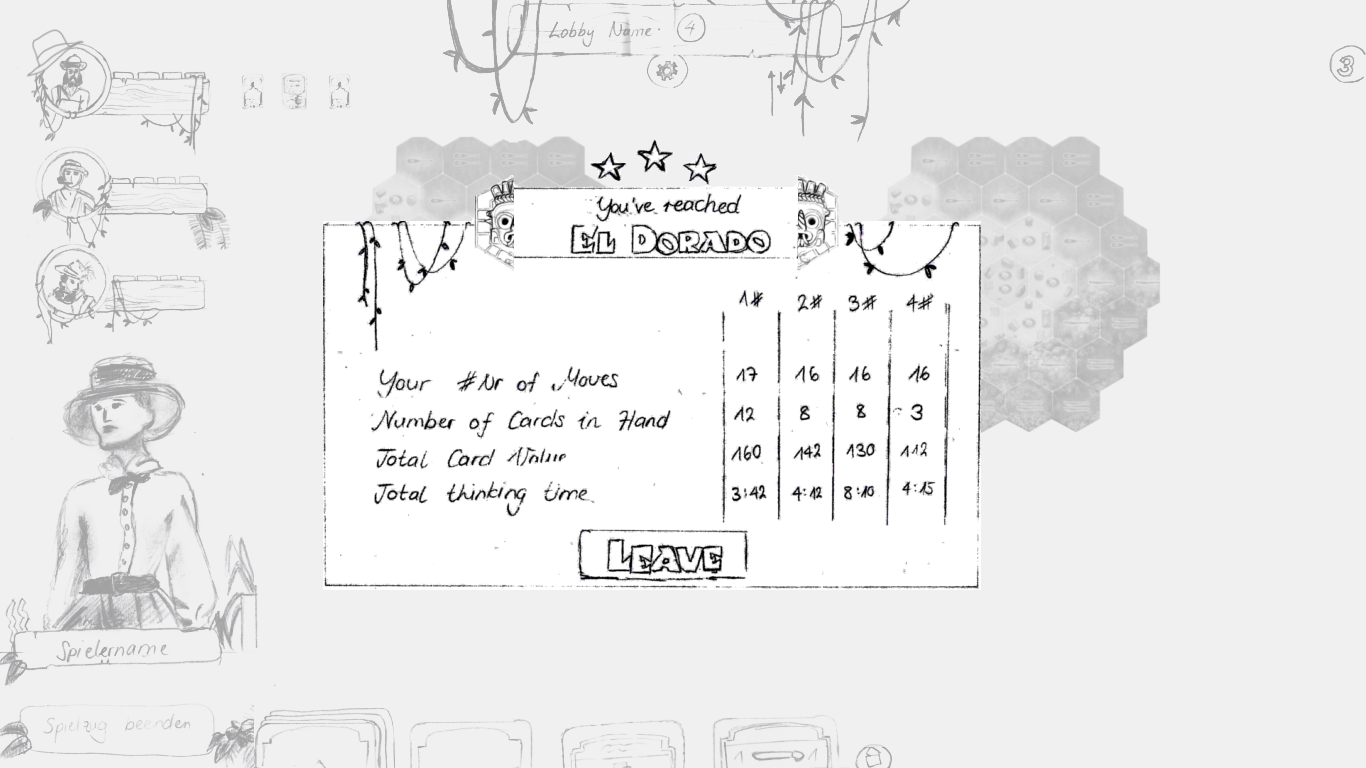 Lobby Name 4
3
You've reached
EL DORADO
1# 2# 3# 4#
Your #Nr of Moves 17 16 16 16
Number of Cards in Hand 12 8 8 3
Total Card Value 160 142 130 112
Total thinking time 3:42 4:12 8:10 4:15
LEAVE
Spielername
Spielzug beenden
1 1